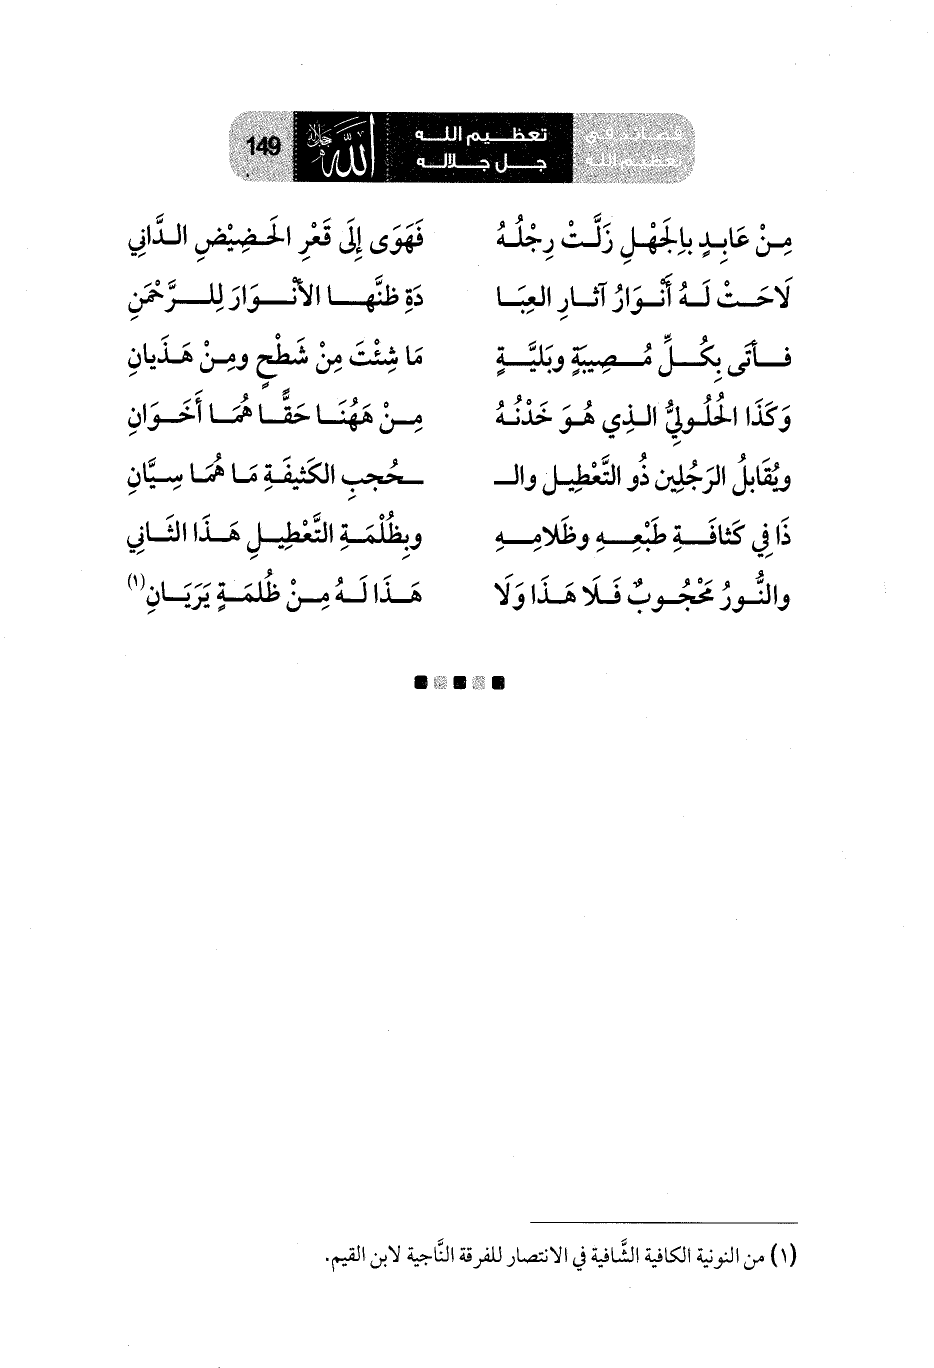 قصائد في تعظيم الله
تعظيم الله
جل جلاله
الله جل جلاله
149
مِنْ عَابِدٍ بِالجَهْلِ زَلَّتْ رِجْلُهُ فَهَوَى إِلَى قَعْرِ الحَضِيْضِ الدَّانِي
لَاحَتْ لَهُ أَنْوَارُ آثارِ العِبَا دَةِ ظنَّها الأنْوَارَ لِلرَّحْمَنِ
فأتَى بِكُلِّ مُصِيبَةٍ وبَليَّةٍ مَا شِئْتَ مِنْ شَطْحٍ ومِنْ هَذَيانِ
وَكَذَا الحُلُوليُّ الذِي هُوَ خَدْنُهُ مِنْ هَهُنَا حَقًّا هُمَا أَخَوَانِ
ويُقَابلُ الرَجُلِين ذُو التَّعْطِيل والـ ـحُجبِ الكَثيفَةِ مَا هُمَا سِيَّانِ
ذَا فِي كَثافَةِ طَبْعِهِ وظَلامِهِ وبِظُلْمَةِ التَّعْطِيلِ هَذَا الثَّانِي
والنُّورُ مَحْجُوبٌ فَلَا هَذَا وَلَا هَذَا لَهُ مِنْ ظُلمَةٍ يَرَيَانِ(١)
(١) من النونية الكافية الشَّافية في الانتصار للفرقة النَّاجية لابن القيم.